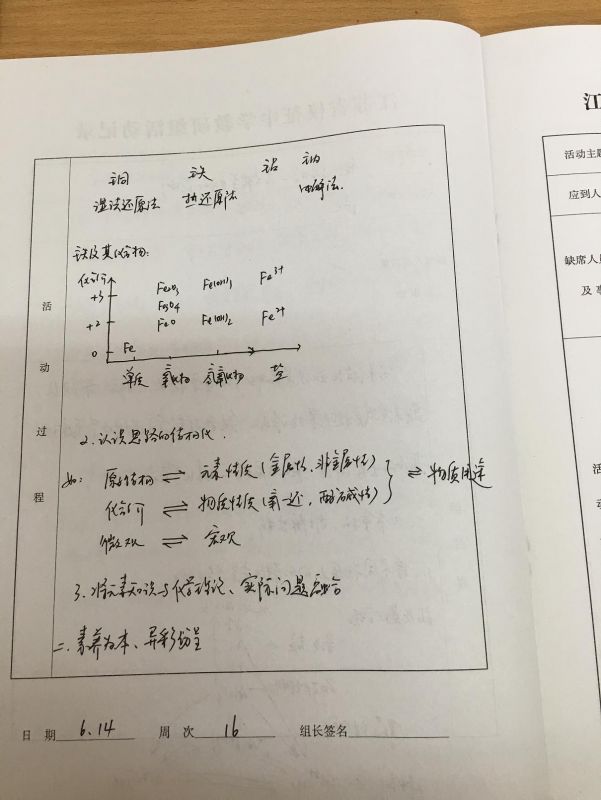 铜 铁 铝 钠
湿法还原法 热还原法 电解法.
铁及其化合物:
化合价
+3 Fe₂O₃ Fe(OH)₃ Fe³⁺
Fe₃O₄
+2 FeO Fe(OH)₂ Fe²⁺
0 Fe
单质 氧化物 氢氧化物 盐
2.认识思路的结构化.
如: 原子结构 ⇌ 元素性质(金属性、非金属性)
化合价 ⇌ 物质性质(氧—还, 酸碱性) } ⇌ 物质用途
微观 ⇌ 宏观
3.将元素知识与化学理论、实际问题融合
二.素养为本、异彩纷呈
活动过程
日 期 6.14 周 次 16 组长签名
江
活动主题
应到人
缺席人
及事